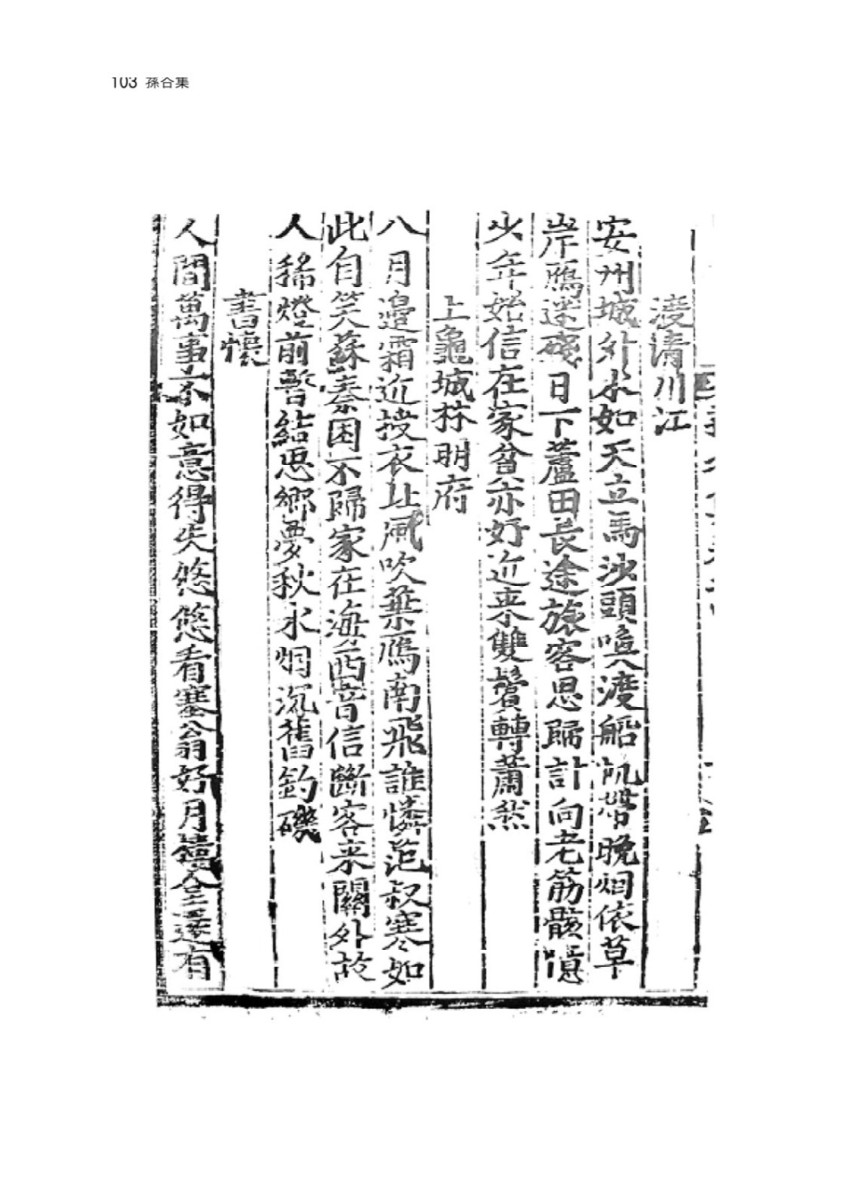 103 孫合集
渡清川江
安州城外水如天立馬沙頭喚渡船帆帶晚烟依草
岸鴈迷殘日下蘆田長途旅客思歸計向老筋骸憶
少年始信在家貧亦好近來雙鬢轉蕭然
上龜城林明府
八月邊霜近授衣北風吹葉鴈南飛誰憐范叔寒如
此自笑蘇秦困不歸家在海西音信斷客來關外故
人稀燈前暫結思鄉夢秋水烟沉舊釣磯
書懷
人間萬事不如意得失悠悠看塞翁好月全還有